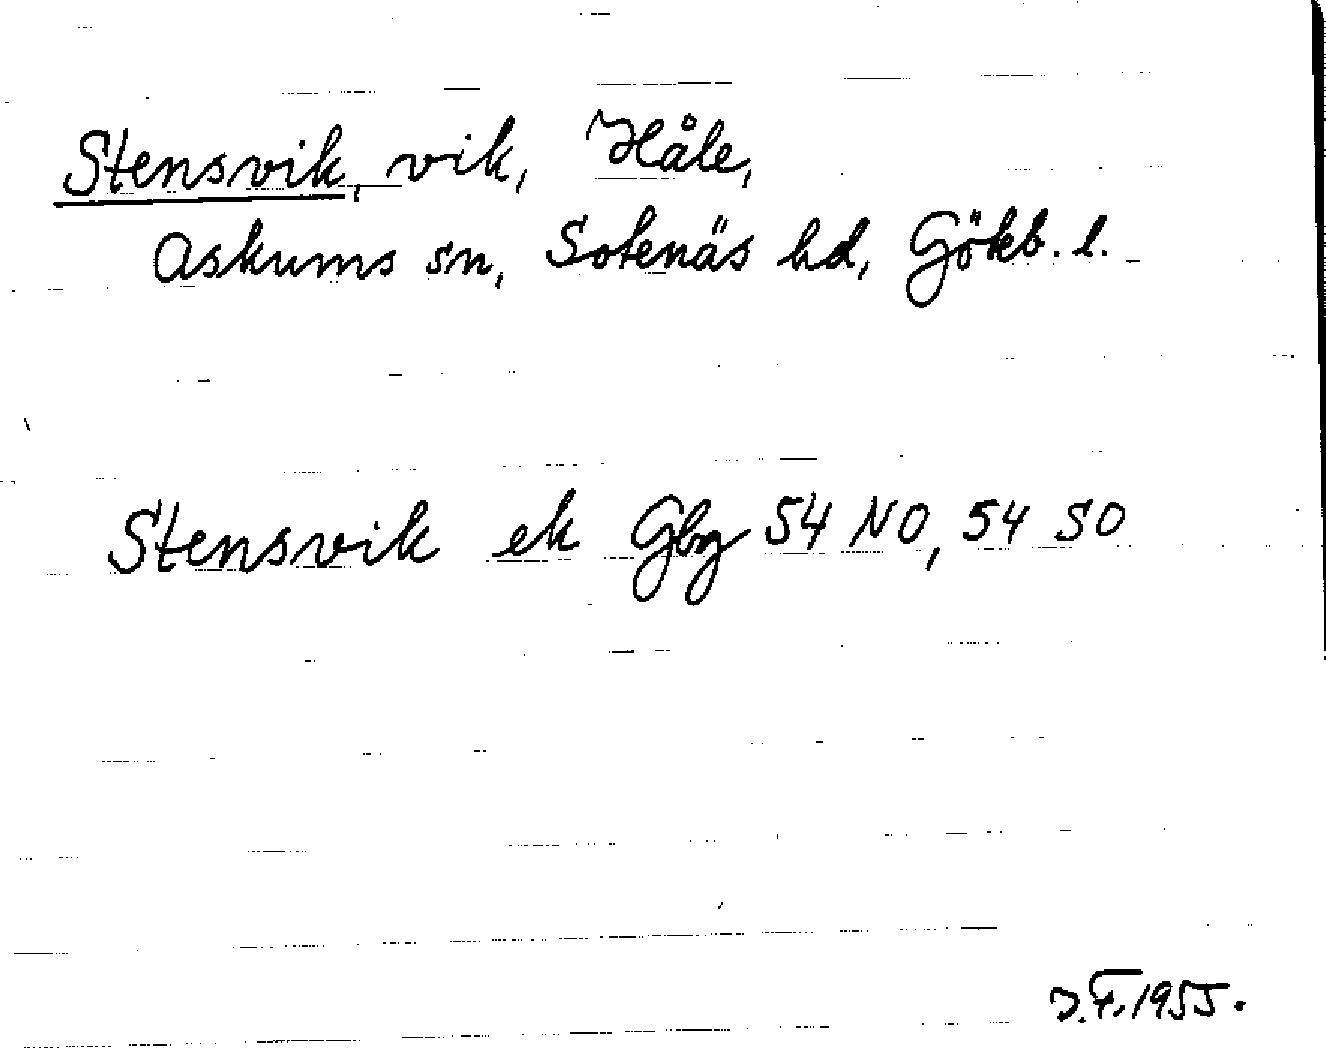 Stensvik, vik, Håle,
Askums sn, Sotenäs hd, Göteb. l.
Stensvik ek Gbg 54 NO, 54 SO
J.F. 1955.